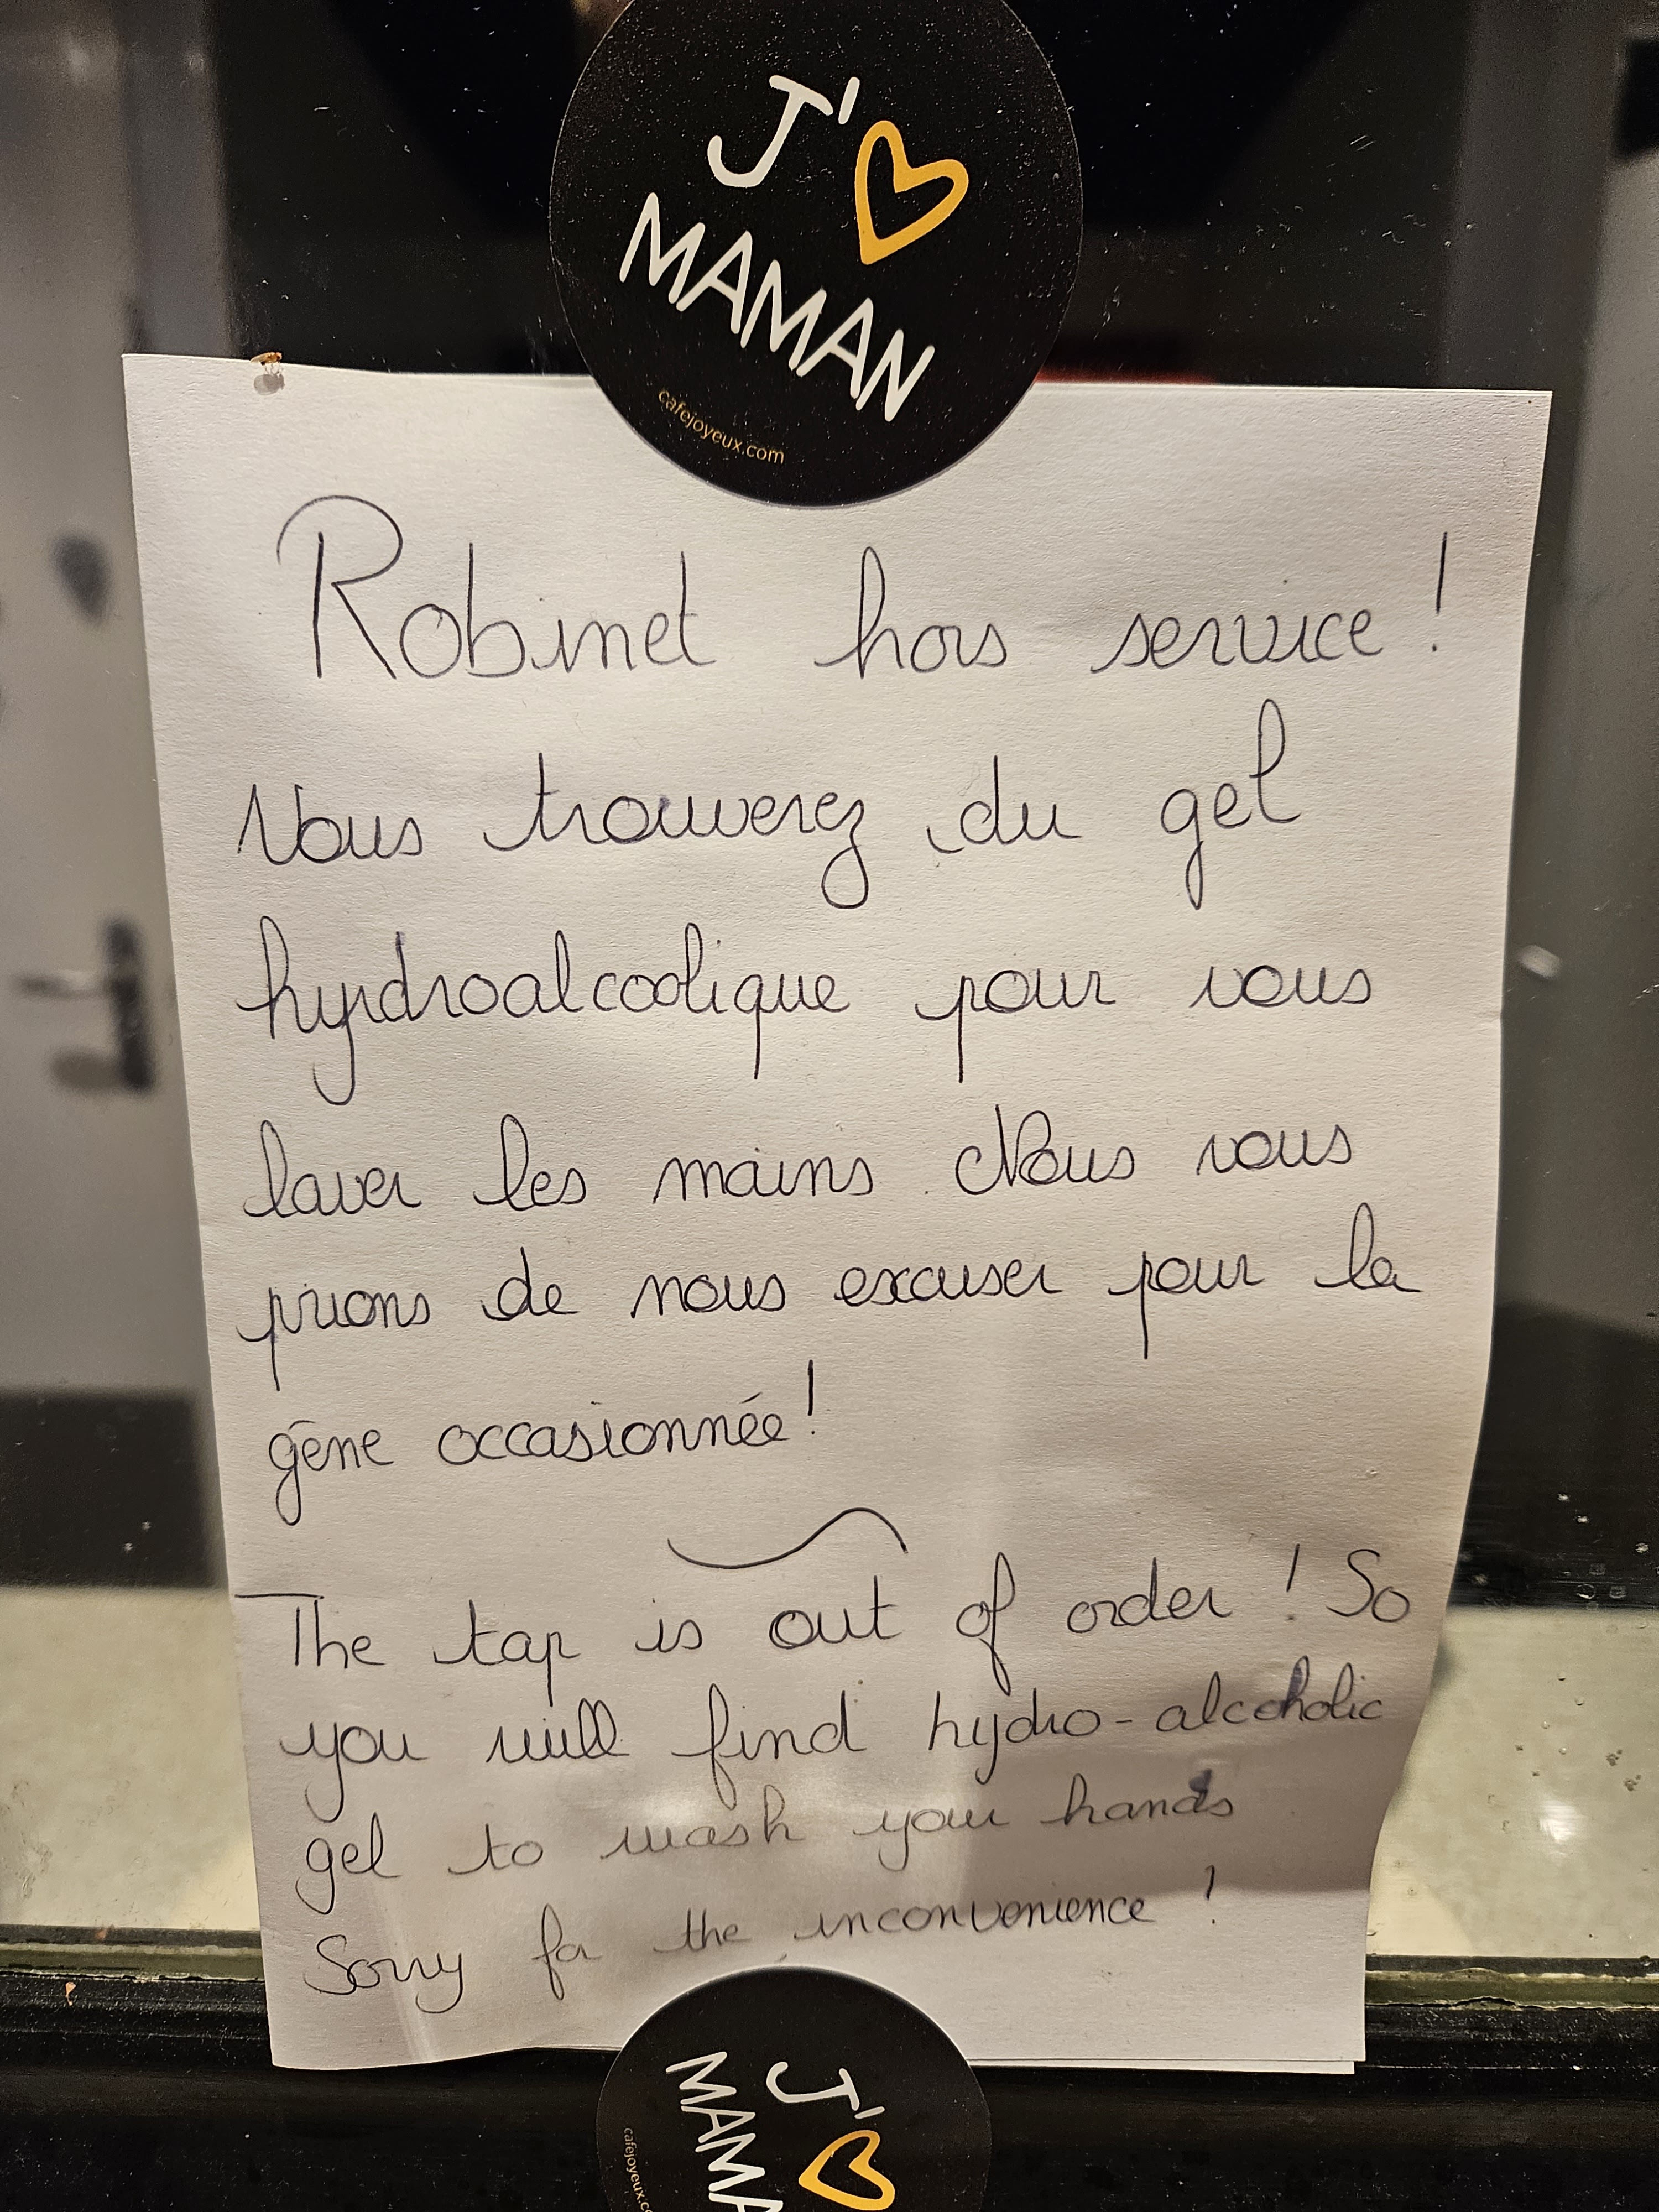 J'♡
MAMAN
cafejoyeux.com
Robinet hors service !
Vous trouverez du gel
hydroalcoolique pour vous
laver les mains. Nous vous
prions de nous excuser pour la
gêne occasionnée !
The tap is out of order ! So
you will find hydro-alcoholic
gel to wash your hands
Sorry for the inconvenience !
J'♡
MAMA
cafejoyeux.co